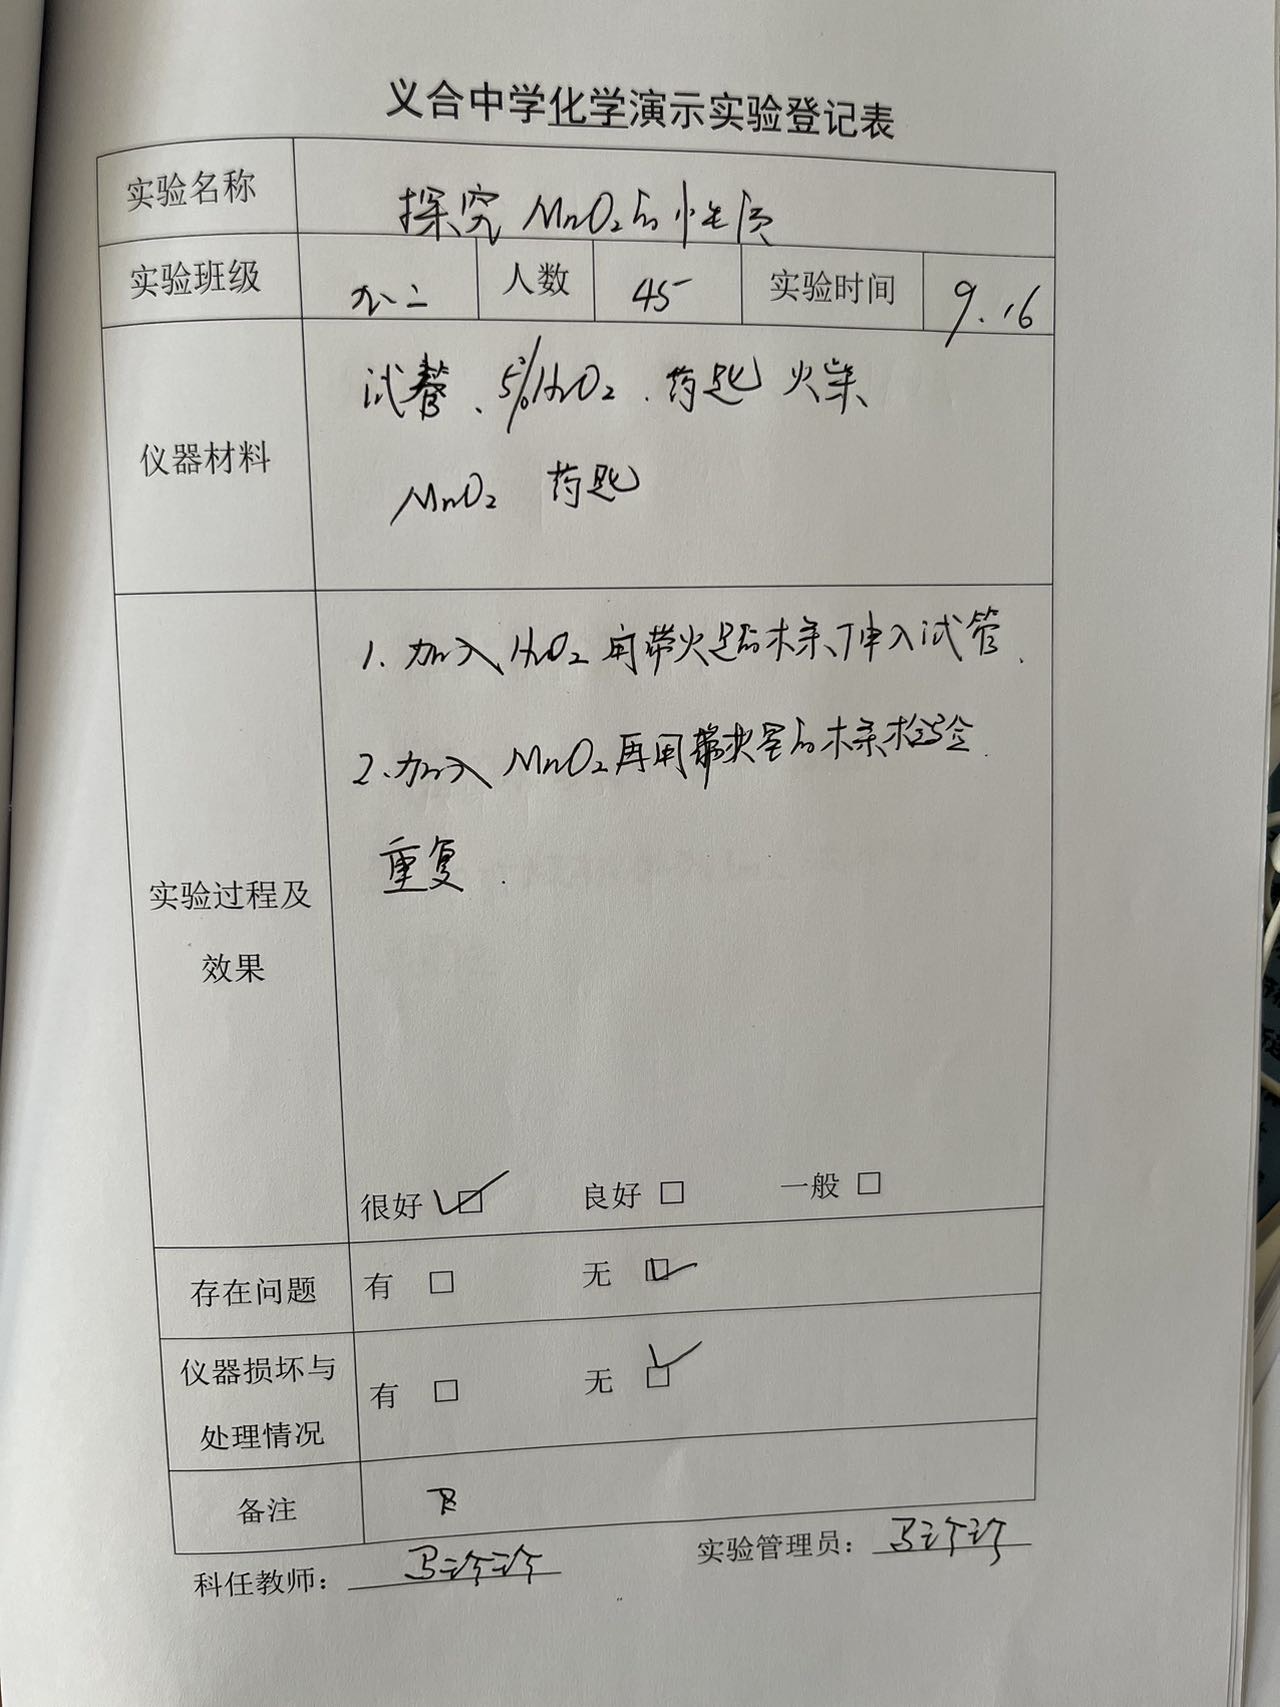 义合中学化学演示实验登记表
实验名称 探究MnO₂的性质
实验班级 九.二 人数 45 实验时间 9.16
仪器材料
试管、5%H₂O₂.药匙 火柴
MnO₂ 药匙
1.加入H₂O₂用带火星的木条伸入试管.
2.加入MnO₂再用带火星的木条检验.
重复.
实验过程及
效果
很好 ☑ 良好 □ 一般 □
存在问题 有 □ 无 ☑
仪器损坏与
处理情况
有 □ 无 ☑
备注
科任教师： 实验管理员：